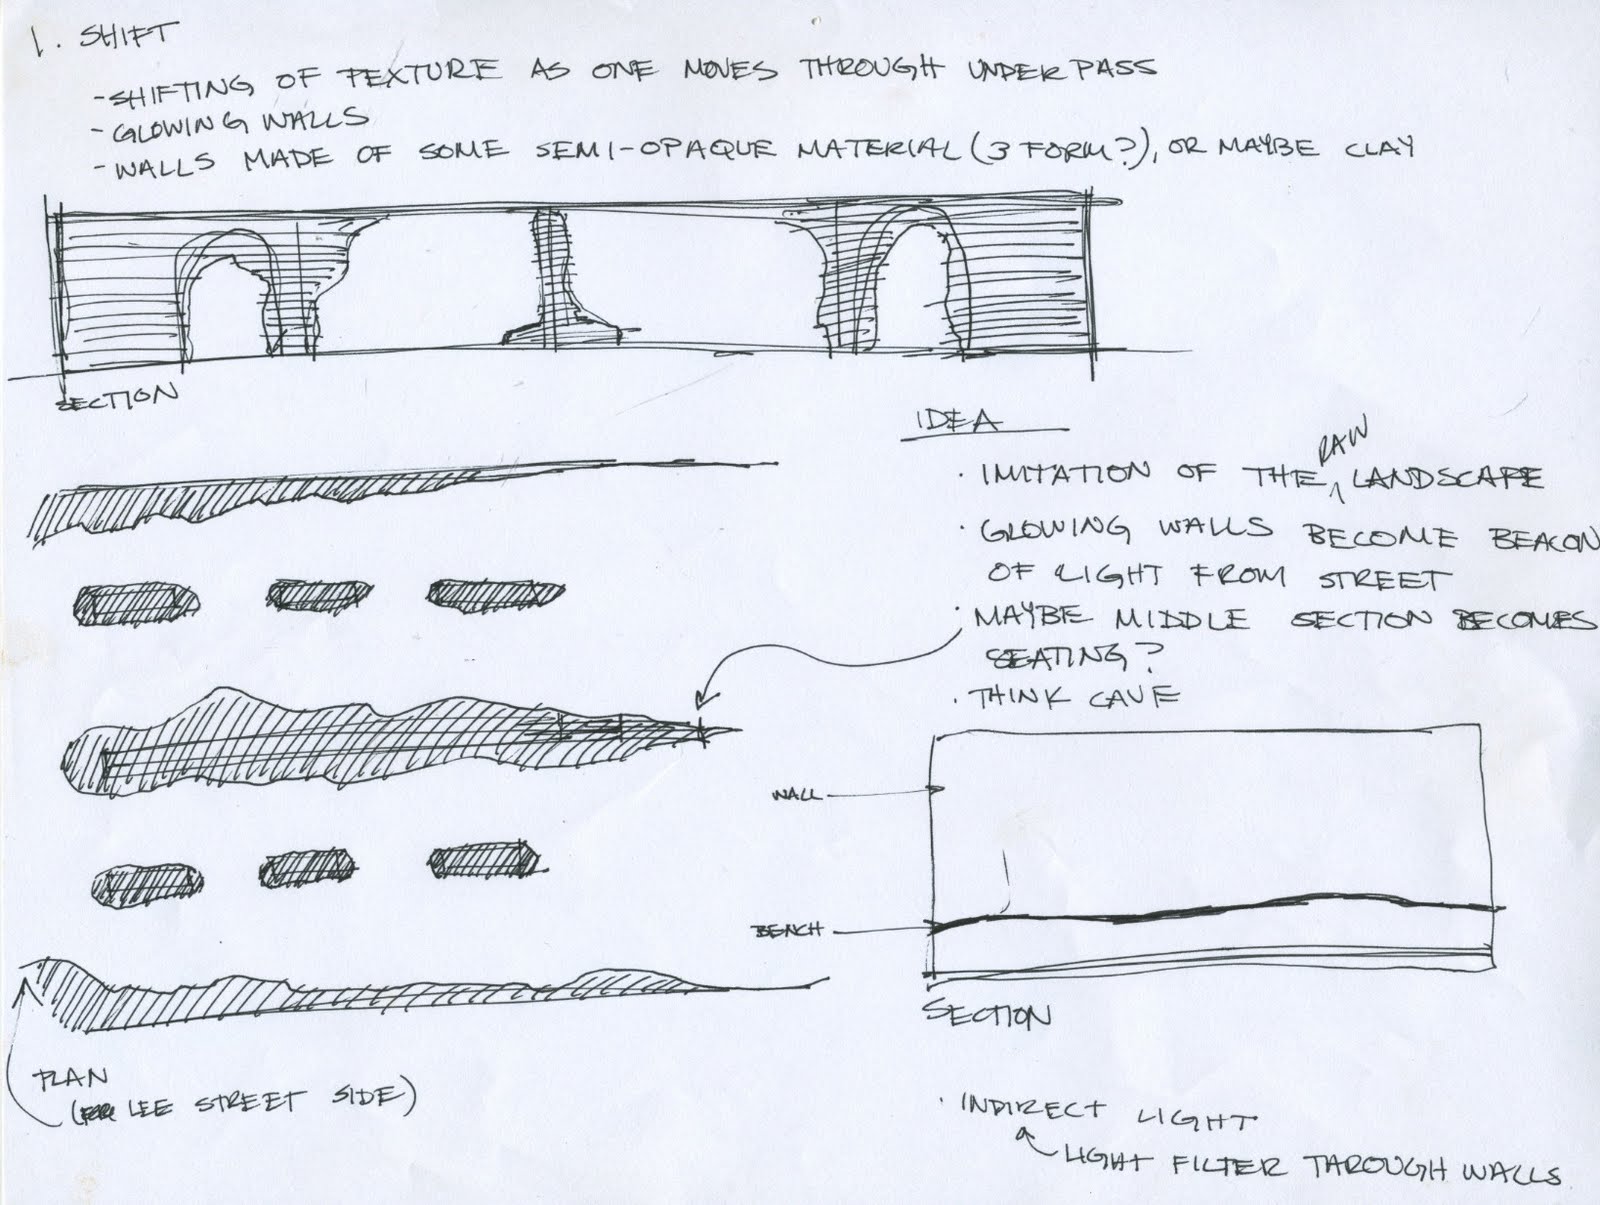 1. SHIFT
- SHIFTING OF TEXTURE AS ONE MOVES THROUGH UNDERPASS
- GLOWING WALLS
- WALLS MADE OF SOME SEMI-OPAQUE MATERIAL (3 FORM?), OR MAYBE CLAY
SECTION
IDEA
· IMITATION OF THE RAW LANDSCAPE
· GLOWING WALLS BECOME BEACON
OF LIGHT FROM STREET
· MAYBE MIDDLE SECTION BECOMES
SEATING?
· THINK CAVE
WALL
BENCH
SECTION
PLAN
(LEE STREET SIDE)
· INDIRECT LIGHT
LIGHT FILTER THROUGH WALLS